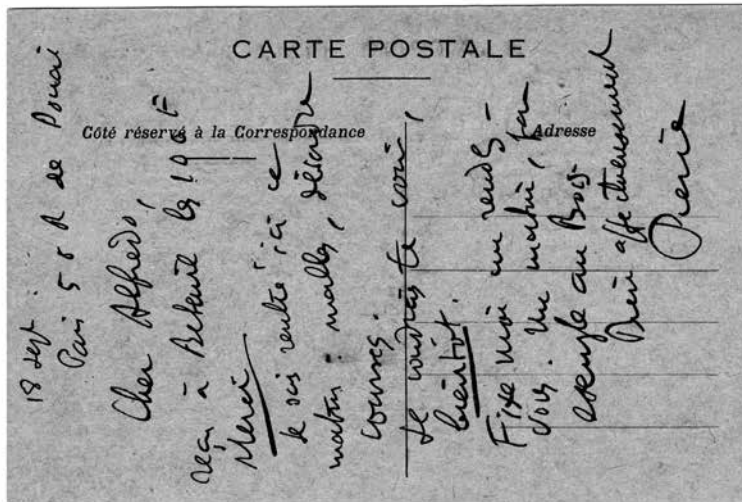 CARTE POSTALE
Côté réservé à la Correspondance
Adresse
18 sept.
Paris 5 r de
Cher Alfredo,
reçu à les 100 F
Merci
Je suis rentré ici ce
matin : malles, désordre
courses.
Je voudrais te voir,
bientôt.
Fixe moi un rendez-
vous. Un matin, par
exemple au Bois
affectueusement
Pierre